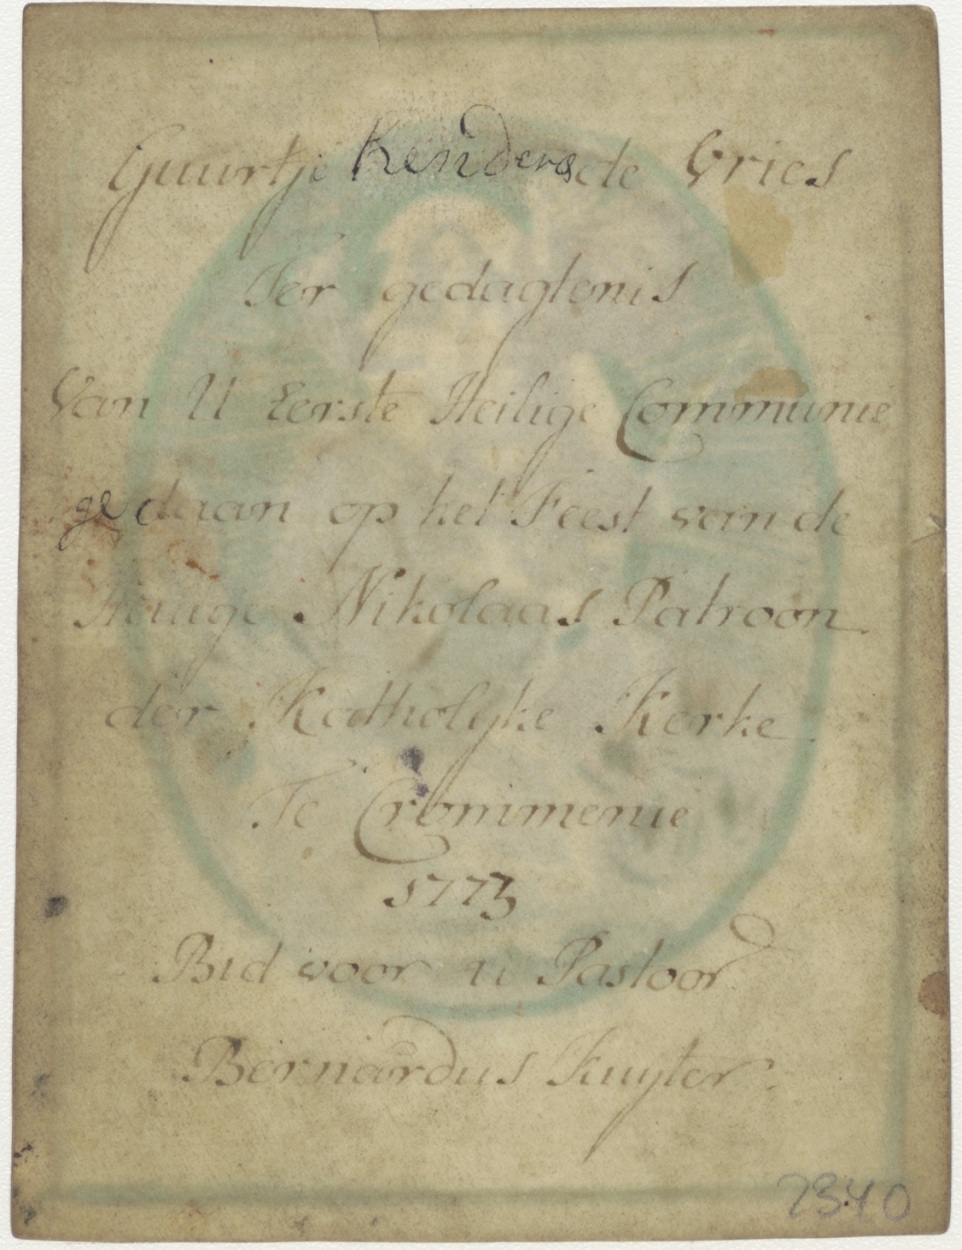 Guurtje Kenders de Vries
Ter gedagtenis
Van U Eerste Heilige Communie
gedaan op het Feest van de
Heilige Nikolaas Patroon
der Katholyke Kerke
Te Crommenie
1773
Bid voor u Pastoor
Bernardus Kuyter.
2340